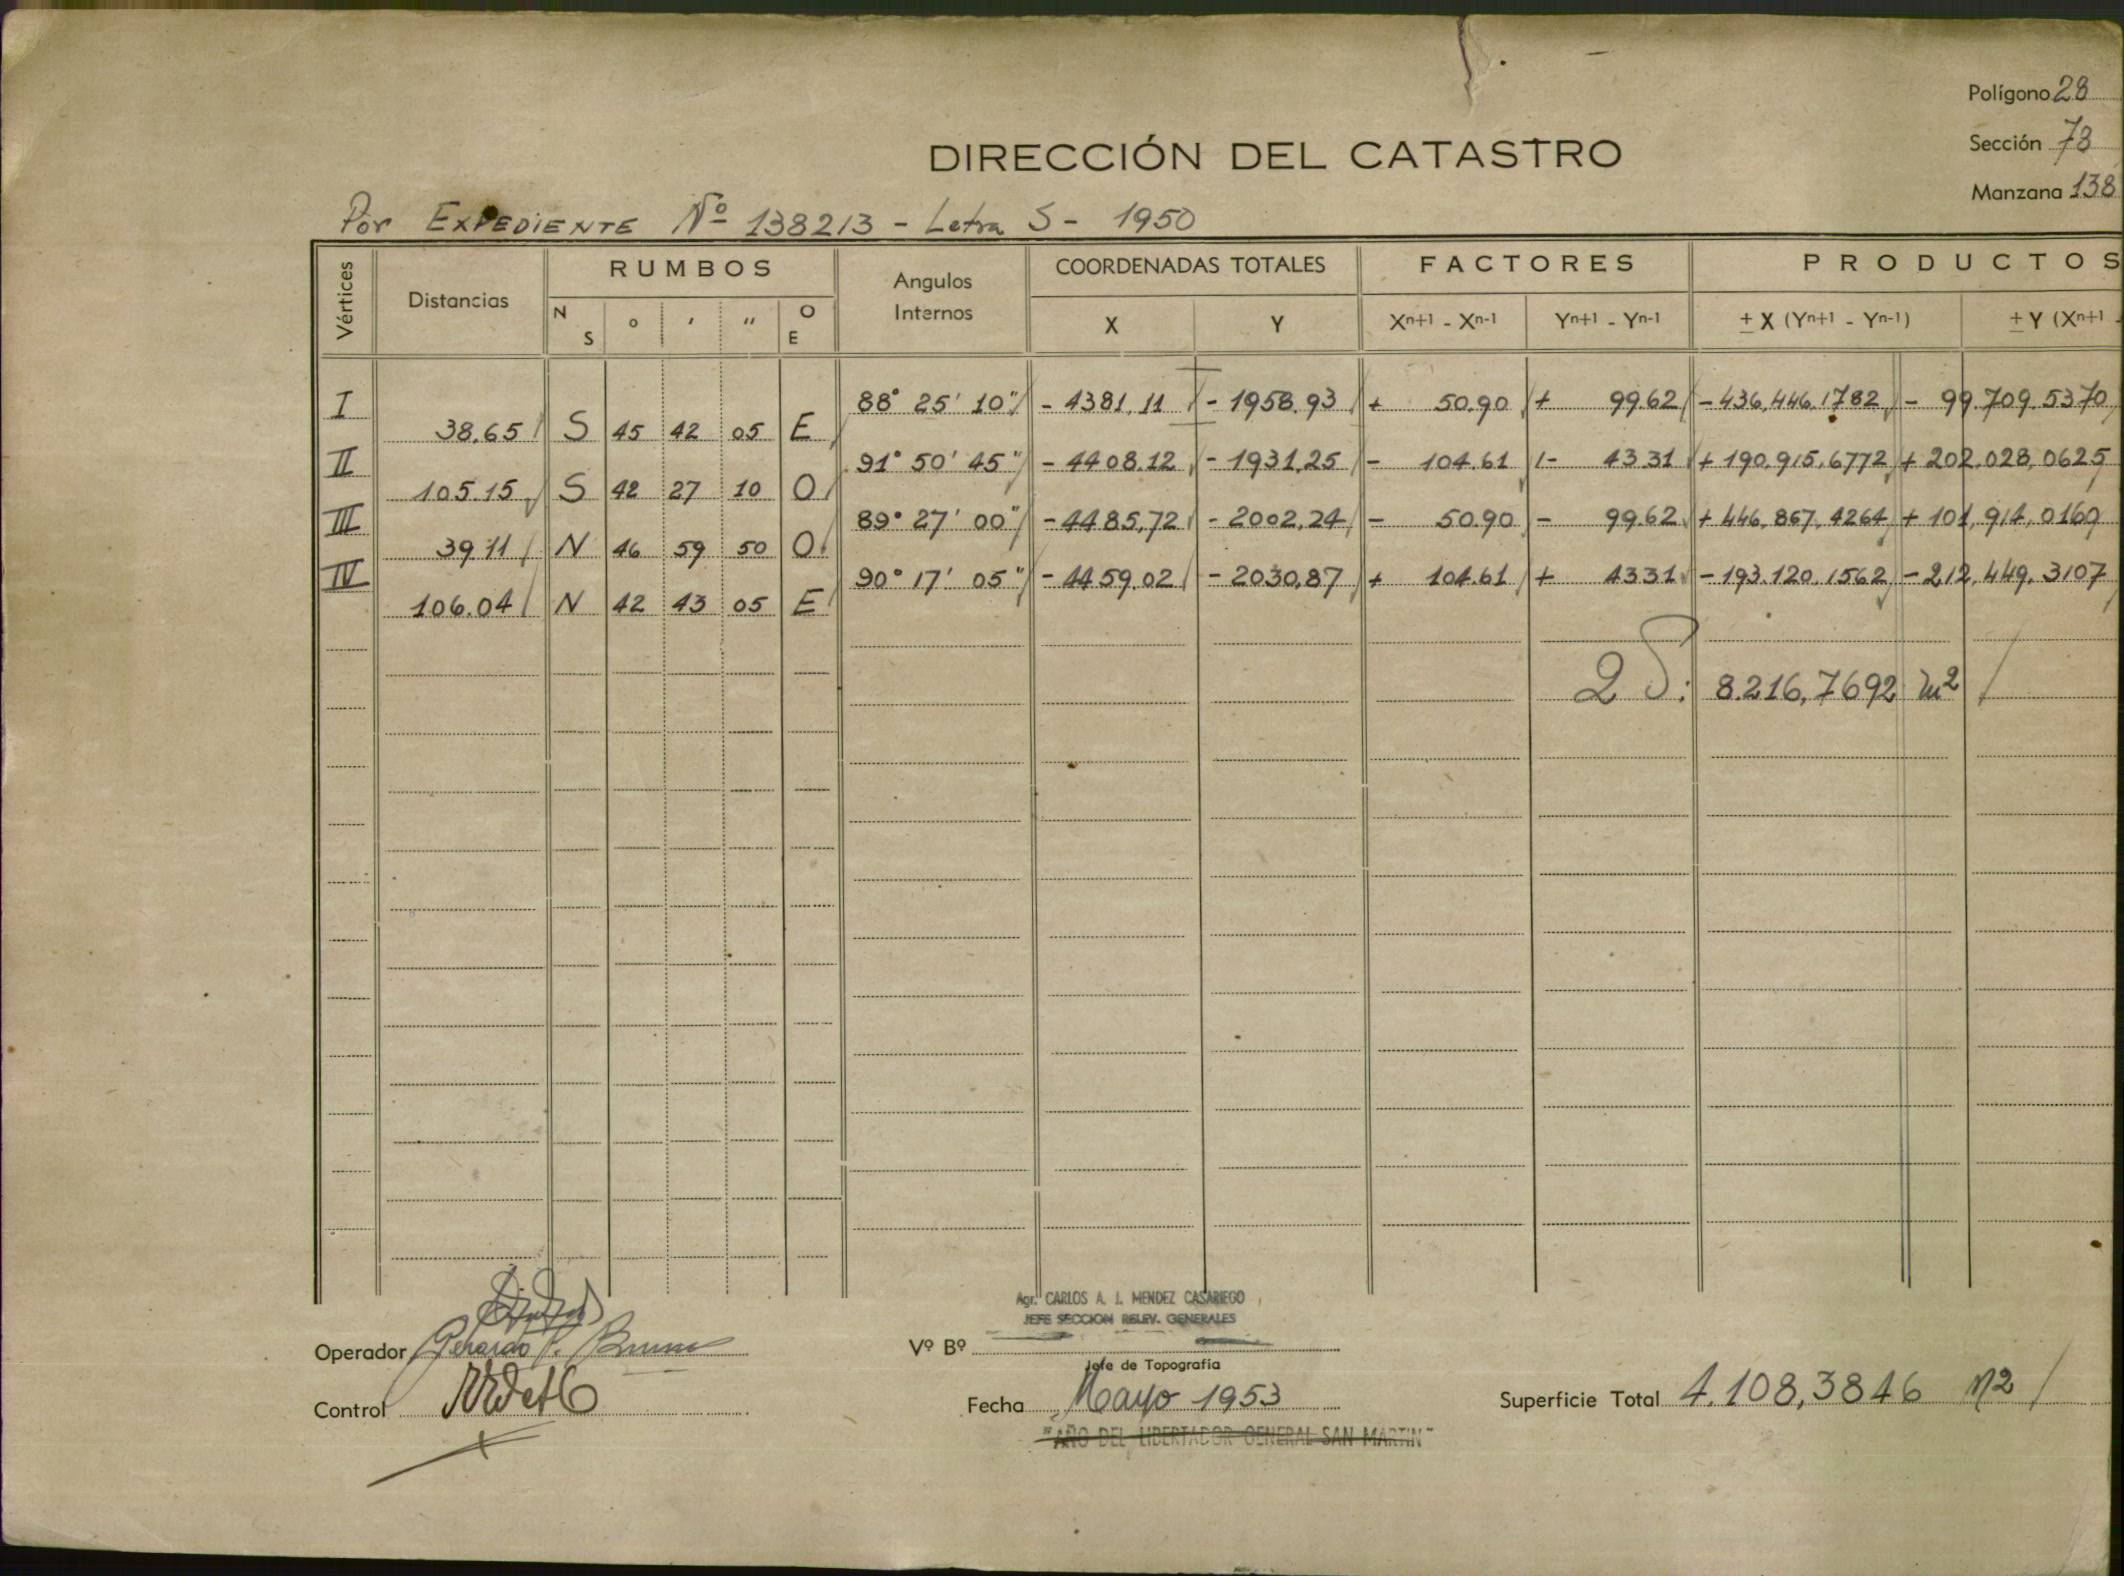 Polígono 28
Sección 78
Manzana 138
DIRECCIÓN DEL CATASTRO
Por EXPEDIENTE Nº 138213 - Letra S - 1950
Vértices Distancias RUMBOS Angulos Internos COORDENADAS TOTALES FACTORES PRODUCTOS
N S ° ′ ″ O E X Y Xn+1 - Xn-1 Yn+1 - Yn-1 ± X (Yn+1 - Yn-1) ± Y (Xn+1 -
I 88° 25' 10" - 4381.11 - 1958.93 + 50.90 + 99.62 - 436.446.1782 - 99.709.5370
38.65 S 45 42 05 E
II 91° 50' 45" - 4408.12 - 1931,25 - 104.61 - 43.31 + 190.915.6772 + 202.028,0625
105.15 S 42 27 10 O
III 89° 27' 00" - 4485,72 - 2002,24 - 50.90 - 99.62 + 446,867,4264 + 101,914,0160
39.11 N 46 59 50 O
IV 90° 17' 05" - 4459.02 - 2030,87 + 104.61 + 43.31 - 193.120.1562 - 212,449.3107
106.04 N 42 43 05 E
2 S: 8.216,7692 m2
Agr. CARLOS A. J. MENDEZ CASARIEGO
JEFE SECCION RELEV. GENERALES
Operador Gerardo P. Bruno
Vº Bº
Jefe de Topografia
Control
Fecha Mayo 1953
Superficie Total 4.108,3846 m2
"AÑO DEL LIBERTADOR GENERAL SAN MARTIN"